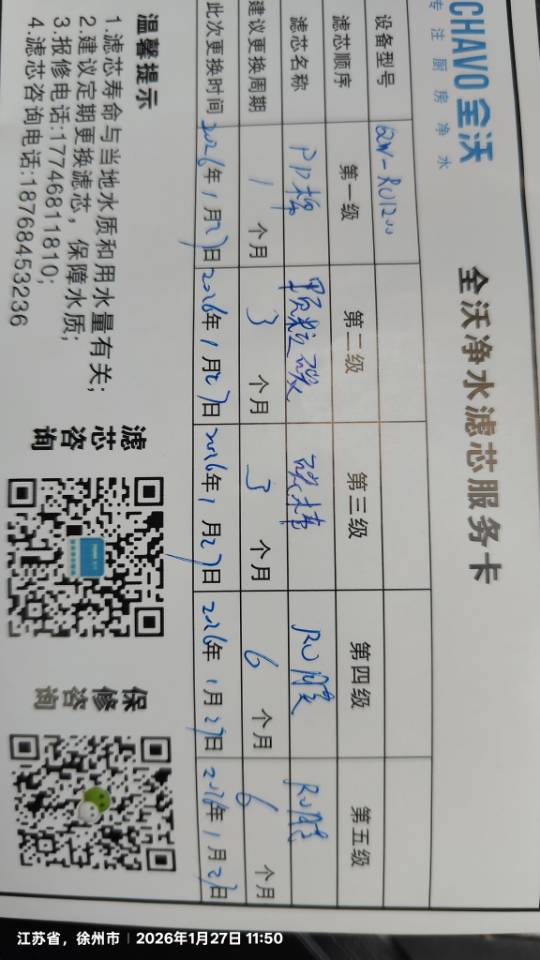 CHAVO全沃
专注厨房净水
全沃净水滤芯服务卡
设备型号 QW-RO1200
滤芯顺序 第一级 第二级 第三级 第四级 第五级
滤芯名称 PP棉 颗粒碳 碳棒 RO膜 RO膜
建议更换周期 1个月 3个月 3个月 6个月 6个月
此次更换时间 2026年1月27日 2026年1月27日 2026年1月27日 2026年1月27日 2026年1月27日
温馨提示
1.滤芯寿命与当地水质和用水量有关;
2.建议定期更换滤芯，保障水质;
3.报修电话:17746811810;
4.滤芯咨询电话:18768453236
滤芯咨询
保修咨询
江苏省，徐州市 | 2026年1月27日 11:50